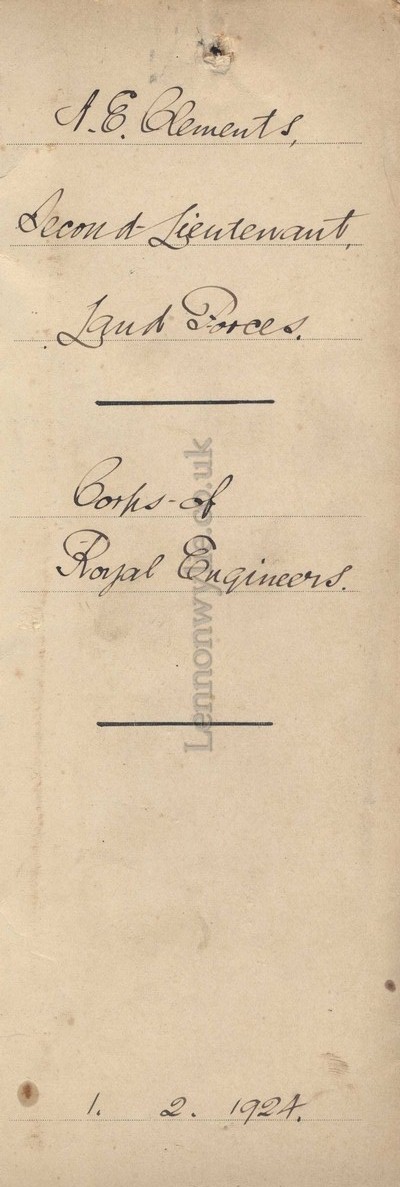 A. E. Clements,
Second Lieutenant,
Land Forces.
Corps of
Royal Engineers.
Lennonwylie.co.uk
1. 2. 1924.